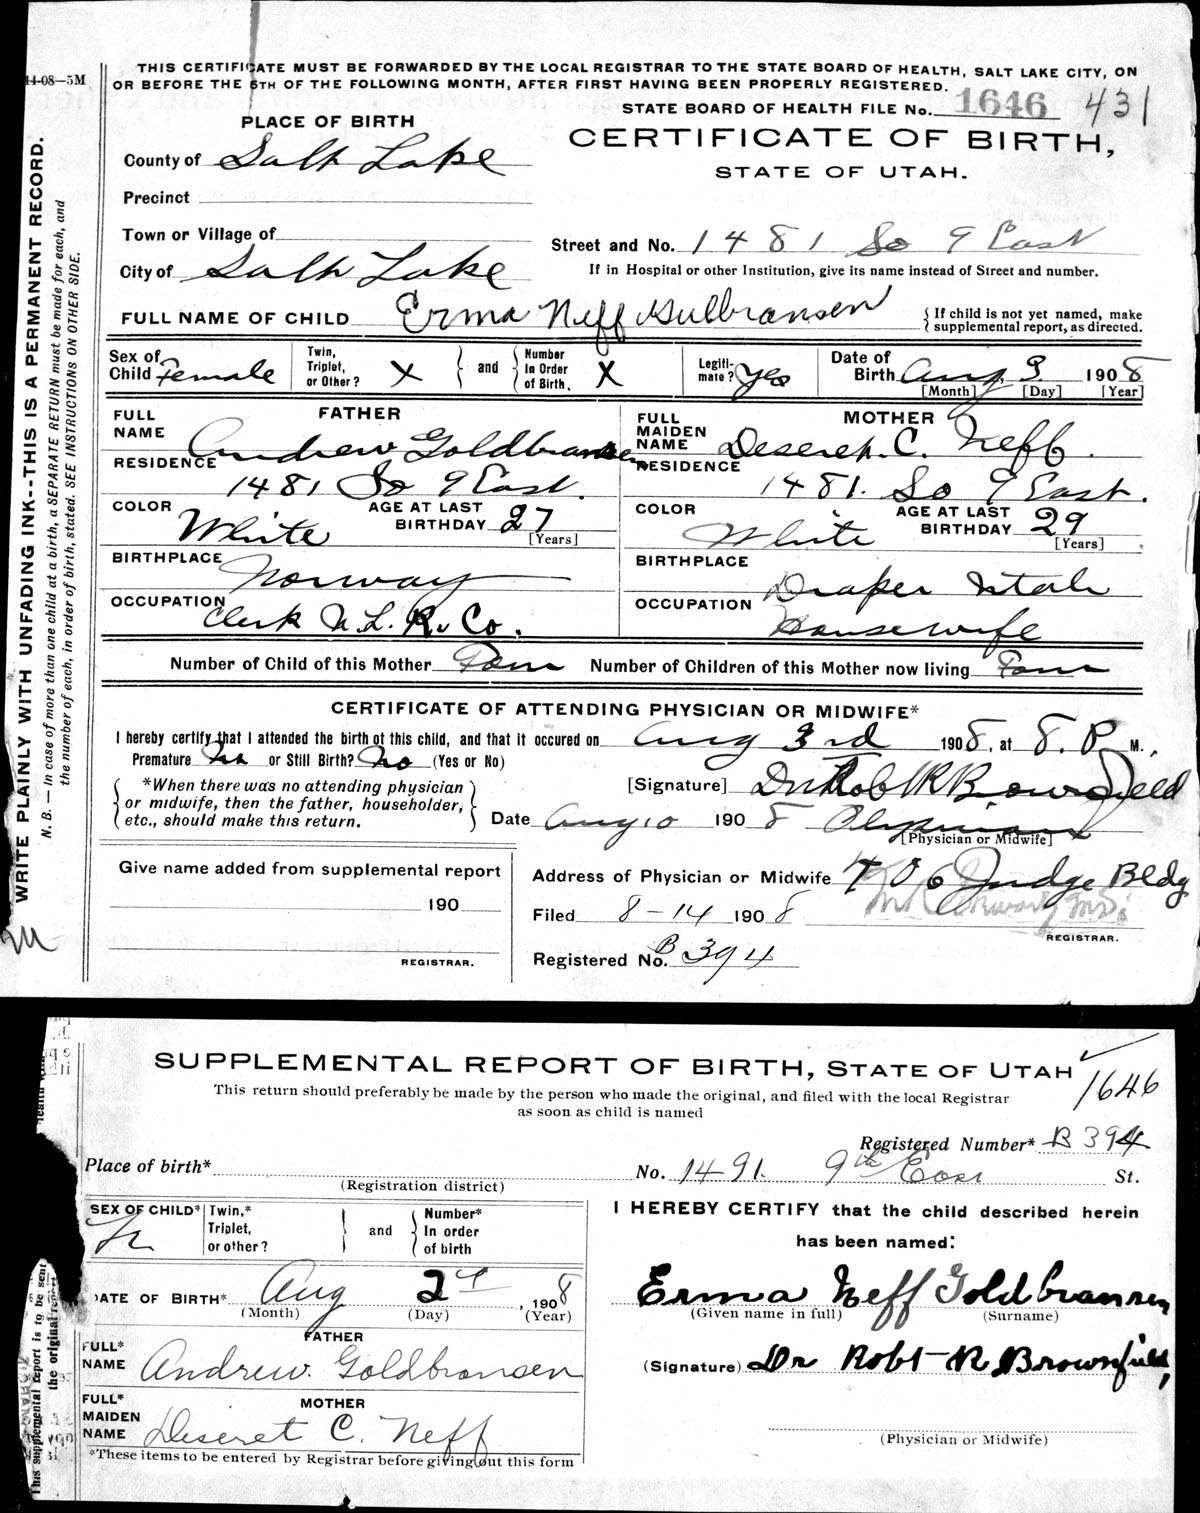 14-08—5M
THIS CERTIFICATE MUST BE FORWARDED BY THE LOCAL REGISTRAR TO THE STATE BOARD OF HEALTH, SALT LAKE CITY, ON
OR BEFORE THE 5TH OF THE FOLLOWING MONTH, AFTER FIRST HAVING BEEN PROPERLY REGISTERED.
STATE BOARD OF HEALTH FILE No. 1646 431
WRITE PLAINLY WITH UNFADING INK--THIS IS A PERMANENT RECORD.
N. B. — In case of more than one child at a birth, a SEPARATE RETURN must be made for each, and
the number of each, in order of birth, stated. SEE INSTRUCTIONS ON OTHER SIDE.
PLACE OF BIRTH
CERTIFICATE OF BIRTH,
STATE OF UTAH.
County of Salt Lake
Precinct
Town or Village of
Street and No. 1481 So 9 East
City of Salt Lake
If in Hospital or other Institution, give its name instead of Street and number.
FULL NAME OF CHILD Erma Neff Gulbransen
If child is not yet named, make
supplemental report, as directed.
Sex of Child Female
Twin, Triplet, or Other? X and Number In Order of Birth. X
Legiti-mate? Yes
Date of Birth Aug. 3 1908
[Month] [Day] [Year]
FATHER
FULL NAME Andrew Goldbransen
RESIDENCE 1481 So 9 East.
COLOR White AGE AT LAST BIRTHDAY 27 [Years]
BIRTHPLACE Norway
OCCUPATION Clerk U. L. R. Co.
MOTHER
FULL MAIDEN NAME Deseret. C. Neff.
RESIDENCE 1481. So 9 East.
COLOR White AGE AT LAST BIRTHDAY 29 [Years]
BIRTHPLACE Draper Utah
OCCUPATION Housewife
Number of Child of this Mother Four Number of Children of this Mother now living Four
CERTIFICATE OF ATTENDING PHYSICIAN OR MIDWIFE*
I hereby certify that I attended the birth ot this child, and that it occured on Aug 3rd 1908, at 8. P M.,
Premature No or Still Birth? No (Yes or No)
*When there was no attending physician
or midwife, then the father, householder,
etc., should make this return.
[Signature] Dr Rob R Brownfield
Date Aug 10 1908 Physician
[Physician or Midwife]
Give name added from supplemental report
190
REGISTRAR.
Address of Physician or Midwife 406 Judge Bldg
Filed 8-14 1908
REGISTRAR.
Registered No. B 394
SUPPLEMENTAL REPORT OF BIRTH, STATE OF UTAH
1646
This return should preferably be made by the person who made the original, and filed with the local Registrar
as soon as child is named
Registered Number* B 394
Place of birth* No. 1491. 9th East St.
(Registration district)
SEX OF CHILD*
Twin,* Triplet, or other? and Number* In order of birth
DATE OF BIRTH* Aug 2d, 1908
(Month) (Day) (Year)
FATHER
FULL* NAME Andrew. Goldbransen
MOTHER
FULL* MAIDEN NAME Deseret C. Neff
*These items to be entered by Registrar before giving out this form
I HEREBY CERTIFY that the child described herein
has been named:
Erma Neff Goldbransen
(Given name in full) (Surname)
(Signature) Dr Robt R Brownfield,
(Physician or Midwife)
This supplemental report is to be sent
the original report